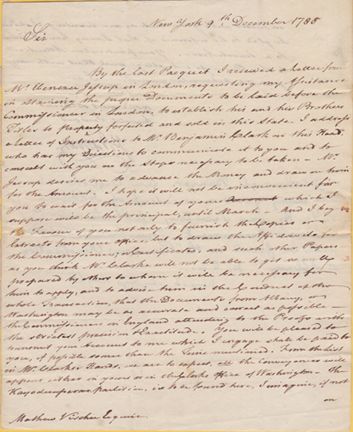 New York 9th December 1788
Sir
By the last Pacquet I received a letter from
Mr Ebenezer Jessup in London, requesting my Assistance
in obtaining the proper Documents to be laid before the
Commissioners in London, to establish his and his Brothers
Titles to Property forfeited and sold in this State. I address
a letter of Instructions to Mr Benjamin Clark on this Head,
who has my Directions to communicate it to you and to
consult with you on the Steps necessary to be taken - Mr
Jessup desires me to advance the Money and draw on him
for the Amount. I hope it will not be inconvenient for
you to wait for the Amount of your Account which I
suppose will be the principal, until March - And I beg
the Favour of you not only to furnish the Copies &
Extracts from your office but to draw the Affidavits for
the Commissioners, Certificates, and such other Papers
as you think Mr Clark will not be able to get so well
prepared by others to whom it will be necessary for
them to apply, and to advise him in the Conduct of the
whole Transaction, that the Documents from Albany &
Washington may be as accurate and exact as possible -
the Commissioners in England attending to the Proofs with
the strictest precision & Exactitude - You will be pleased to
transmit your Account to me which I engage shall be paid to
you, if possible sooner than the Time mentioned. From the List
in Mr Clark's Hands, we are to expect, all the conveyances will
appear either in yours or the Clerks office of Washington - The
Kayaderosseras partition, is to be found here, I imagine, if not
on
Mathew Visscher Esquire